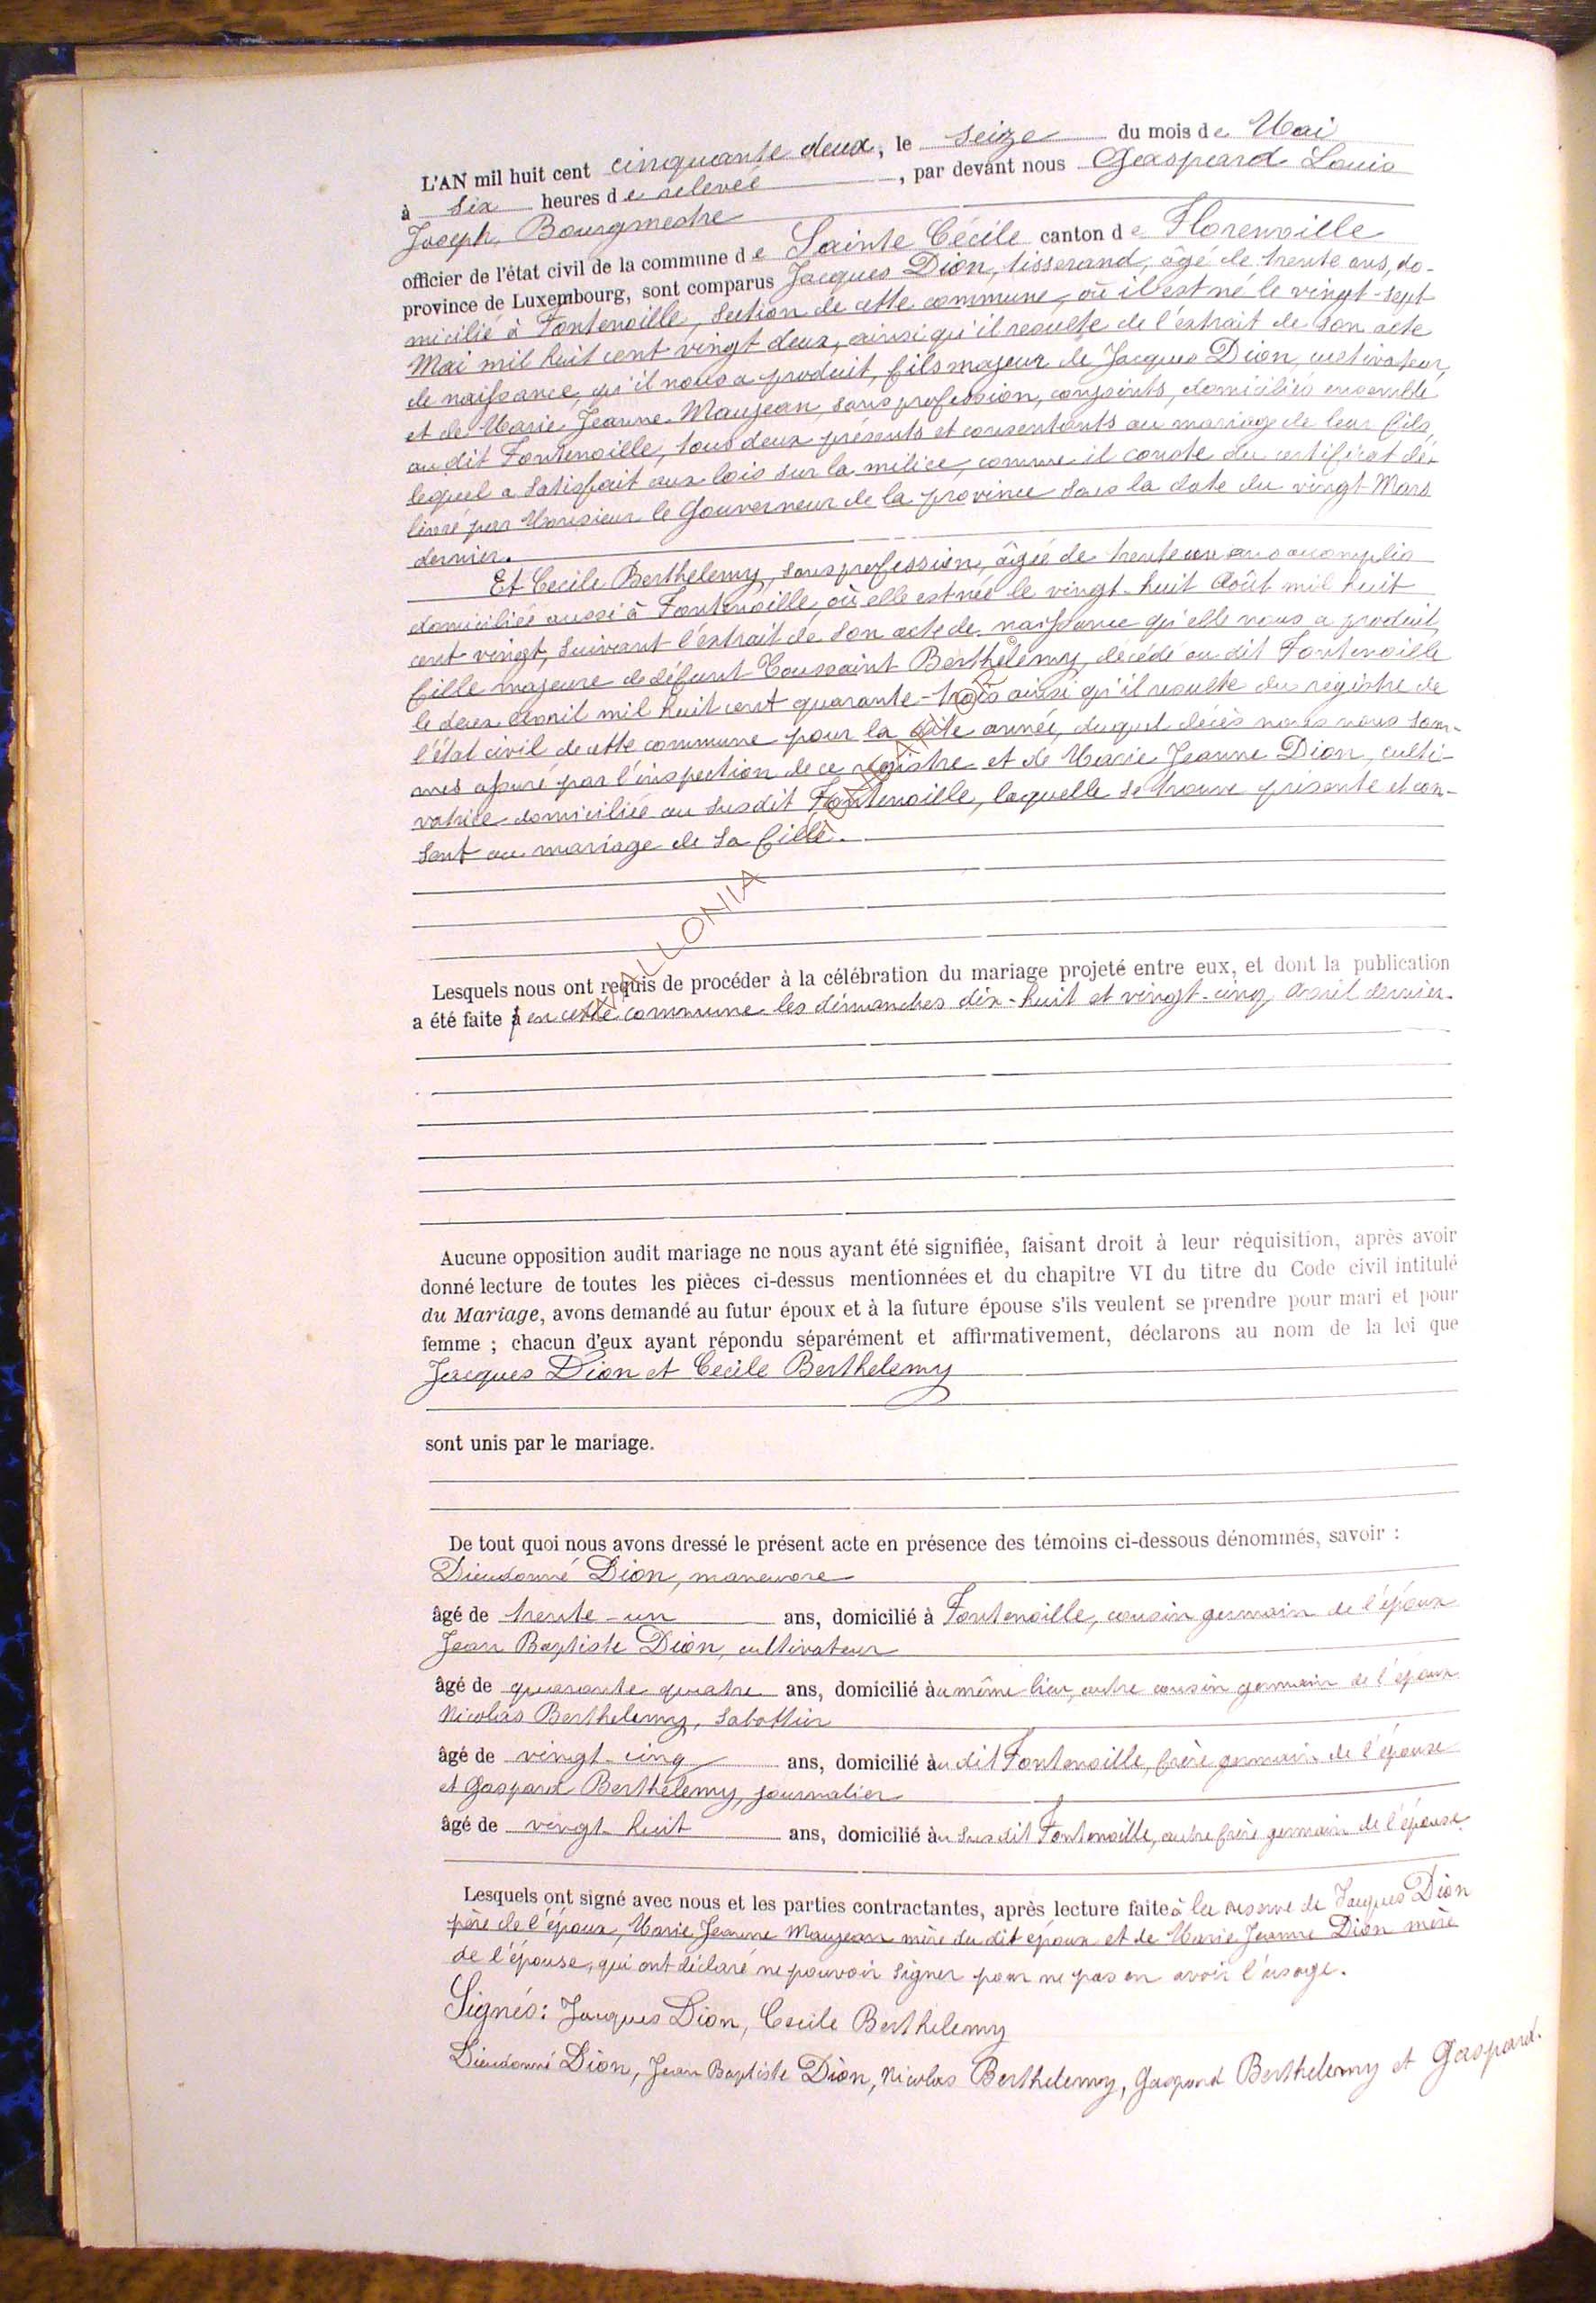 L'AN mil huit cent cinquante deux, le seize du mois de Mai
à six heures de relevée, par devant nous Gaspard Louis
Joseph, Bourgmestre
officier de l'état civil de la commune de Sainte Cécile canton de Florenville
province de Luxembourg, sont comparus Jacques Dion, tisserand, âgé de trente ans, do-
micilié à Fontenoille, section de cette commune, où il est né le vingt-sept
Mai mil huit cent vingt deux, ainsi qu'il resulte de l'extrait de son acte
de naissance, qu'il nous a produit, fils majeur de Jacques Dion, cultivateur,
et de Marie Jeanne Maujean, sans profession, conjoints, domiciliés ensemble
au dit Fontenoille, tous deux présents et consentants au mariage de leur fils,
lequel a satisfait aux lois sur la milice, comme il conste du certificat dé-
livré par Monsieur le Gouverneur de la province sous la date du vingt Mars
dernier.
Et Cecile Berthelemy, sans profession, âgée de trente un ans accomplis
domiciliée aussi à Fontenoille, où elle est née le vingt-huit Août mil huit
cent vingt, suivant l'extrait de son acte de naissance qu'elle nous a produit,
fille majeure de défunt Toussaint Berthelemy, décédé au dit Fontenoille
le deux Avril mil huit cent quarante-trois ainsi qu'il resulte du régistre de
l'état civil de cette commune pour la dite année, duquel décès nous nous som-
mes assuré par l'inspection de ce registre et de Marie Jeanne Dion, culti-
vatrice domiciliée au susdit Fontenoille, laquelle se trouve présente et con-
sent au mariage de sa fille.
WALLONIA
Lesquels nous ont requis de procéder à la célébration du mariage projeté entre eux, et dont la publication
a été faite à en cette commune les dimanches dix-huit et vingt-cinq Avril dernier.
Aucune opposition audit mariage ne nous ayant été signifiée, faisant droit à leur réquisition, après avoir
donné lecture de toutes les pièces ci-dessus mentionnées et du chapitre VI du titre du Code civil intitulé
du Mariage, avons demandé au futur époux et à la future épouse s'ils veulent se prendre pour mari et pour
femme ; chacun d'eux ayant répondu séparément et affirmativement, déclarons au nom de la loi que
Jacques Dion et Cecile Berthelemy
sont unis par le mariage.
De tout quoi nous avons dressé le présent acte en présence des témoins ci-dessous dénommés, savoir :
Dieudonné Dion, manœuvre
âgé de trente-un ans, domicilié à Fontenoille, cousin germain de l'époux
Jean Baptiste Dion, cultivateur
âgé de quarante quatre ans, domicilié au même lieu, autre cousin germain de l'époux
Nicolas Berthelemy, sabottier
âgé de vingt-cinq ans, domicilié au dit Fontenoille, frère germain de l'épouse
et Gaspard Berthelemy, journalier
âgé de vingt-huit ans, domicilié au susdit Fontenoille, autre frère germain de l'épouse.
Lesquels ont signé avec nous et les parties contractantes, après lecture faite à la reserve de Jacques Dion
père de l'époux, Marie Jeanne Maujean mère du dit époux et de Marie Jeanne Dion mère
de l'épouse, qui ont déclaré ne pouvoir signer pour ne pas en avoir l'usage.
Signés: Jacques Dion, Cecile Berthelemy
Dieudonné Dion, Jean Baptiste Dion, Nicolas Berthelemy, Gaspard Berthelemy et Gaspard.